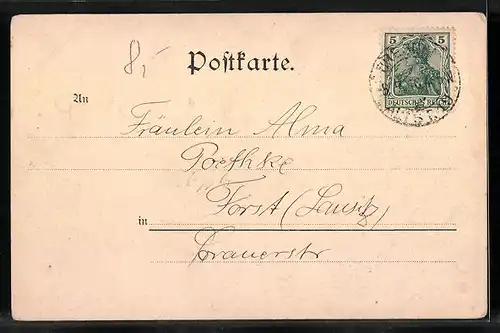 8,-
Postkarte.
5
DEUTSCHES REICH
An
Fräulein Alma
Poethke
Forst (Lausitz)
in
Sorauerstr